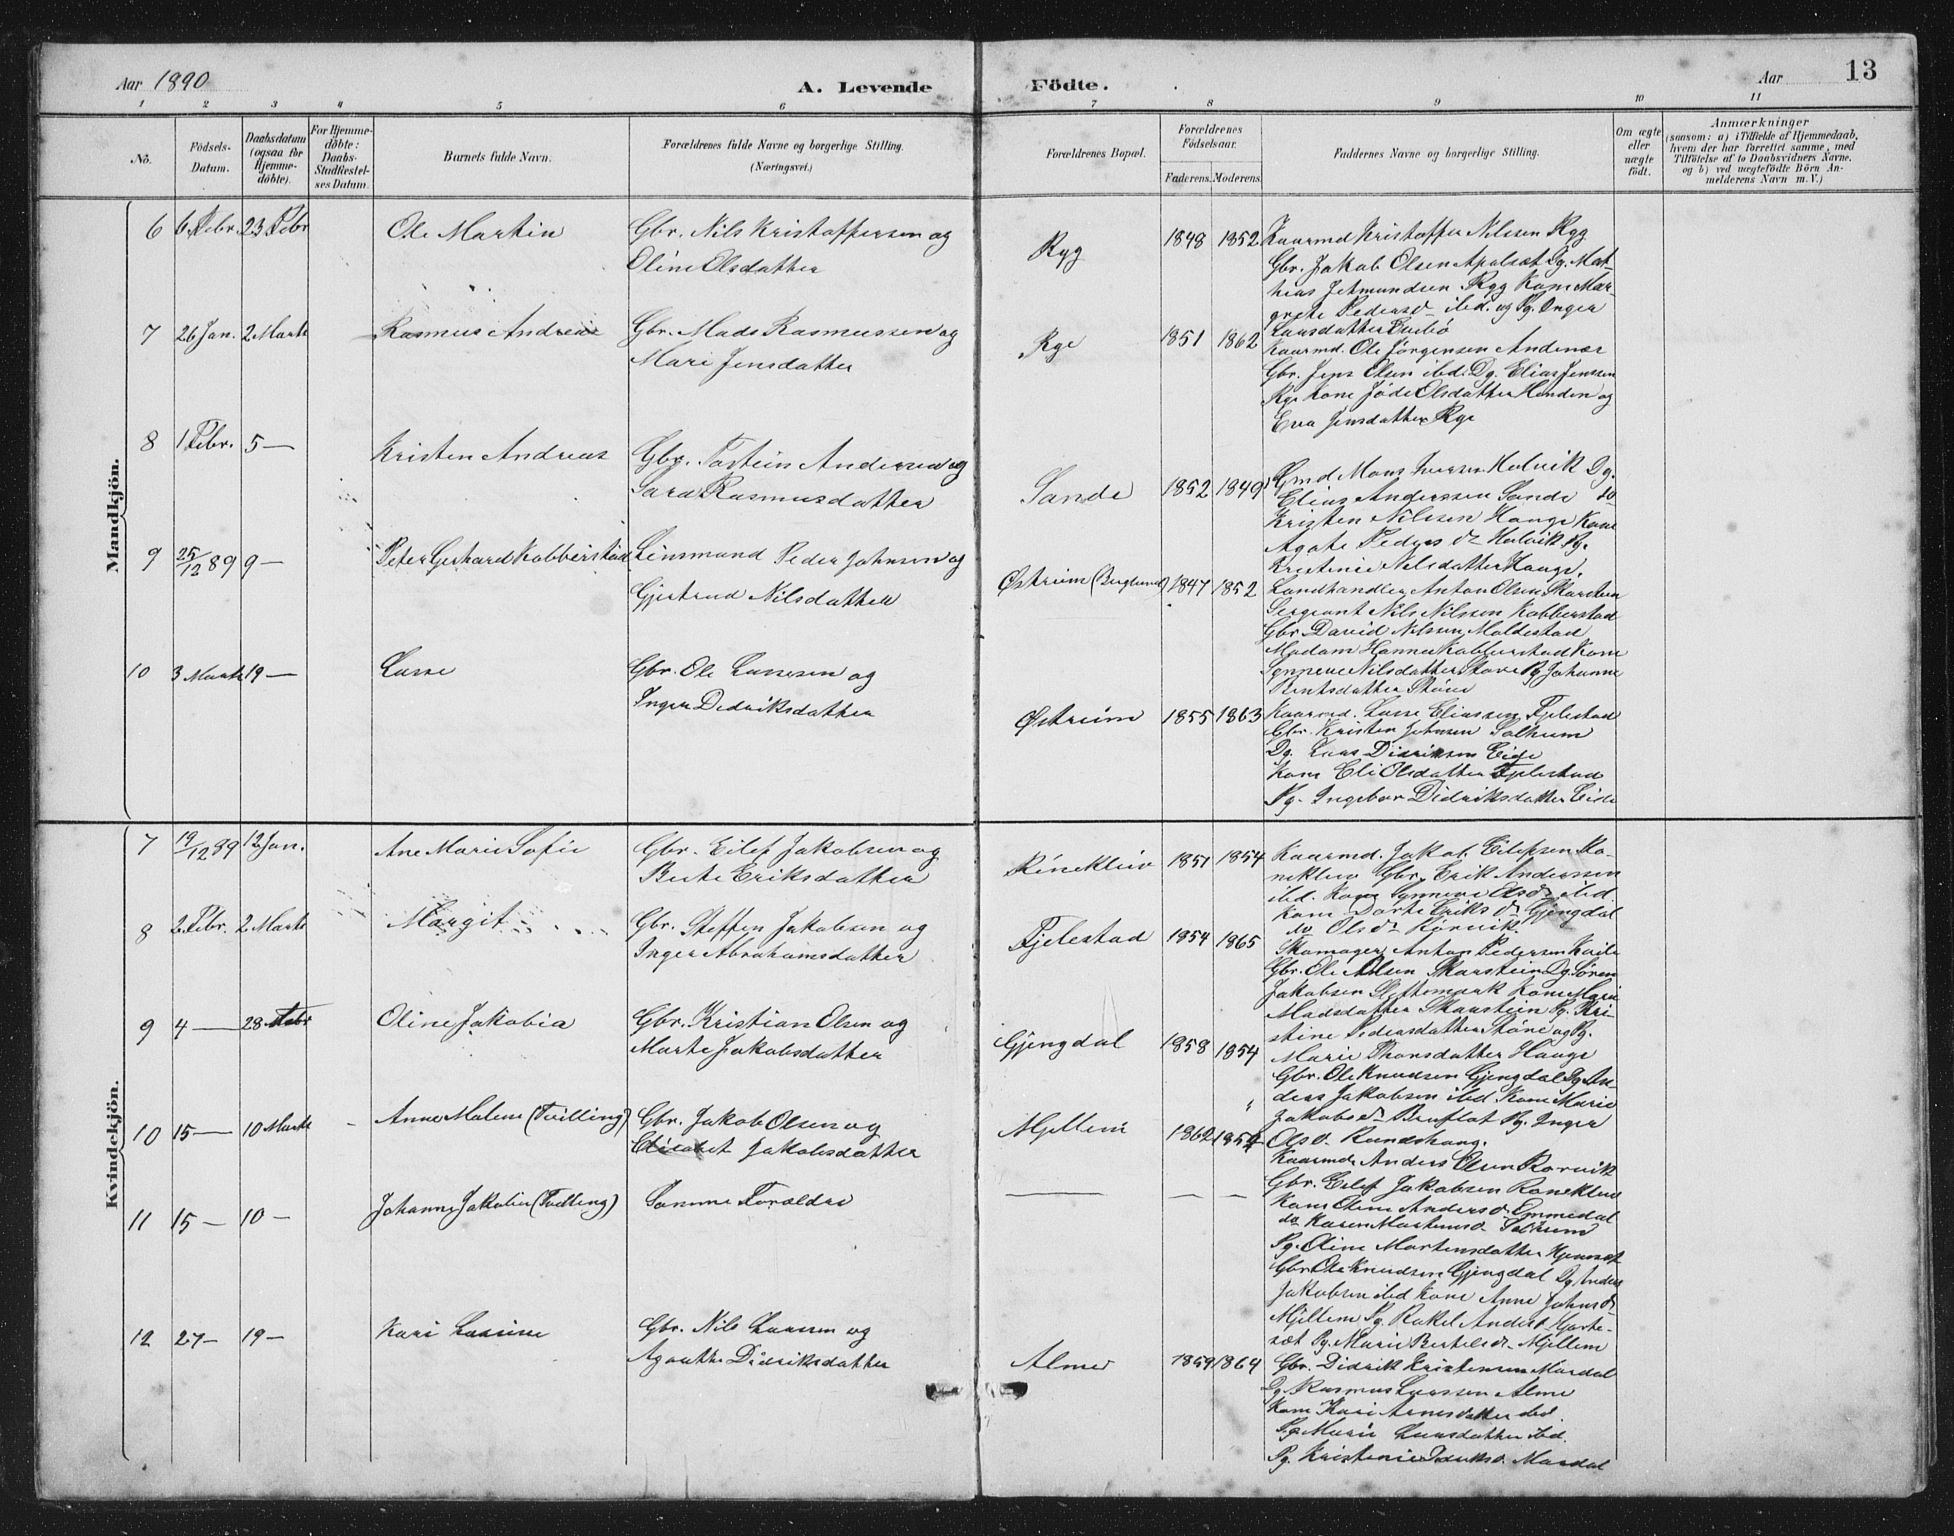 Aar 1890
A. Levende Födte.
Aar
13
1 2 3 4 5 6 7 8 9 10 11
No.
Födsels-
Datum.
Daabsdatum
(ogsaa for
Hjemme-
døbte).
For Hjemme-
døbte:
Daabs-
Stadfæstel-
ses Datum.
Barnets fulde Navn.
Forældrenes fulde Navne og borgerlige Stilling.
(Næringsvei.)
Forældrenes Bopæl.
Forældrenes
Födselsaar.
Faderens. Moderens.
Faddernes Navne og borgerlige Stilling.
Om ægte
eller
uægte
født.
Anmærkninger
(saasom: a) i Tilfælde af Hjemmedaab,
hvem der har forrettet samme, med
Tilføielse af to Daabsvidners Navne,
og b) ved uægtefødte Börn An-
melderens Navn m. V.)
Mandkjön.
6 6 Febr. 23 Febr Ole Martin Gbr. Nils Kristoffersen og
Oline Olsdatter
Ryg 1848 1852
Kaarmd Kristoffer Nilsen Ryg
Gbr. Jakob Olsen Apalset Dg. Mat-
hias Jetmundsen Ryg Kone Mar-
grete Pedersd ibd. og Pg. Inger
Larsdatter
7 26 Jan. 2 Marts Rasmus Andreas Gbr. Mads Rasmussen og
Mari Jensdatter
Rge 1851 1862
Kaarmd. Ole Jørgensen Andenær
Gbr. Jens Olsen ibd. Dg. Elias Jenssen
Rge Kone Jøde Olsdatter Henden og
Eva Jensdatter Rge
8 1 Febr. 5 — Kristen Andreas Gbr. Tostein Andersen og
Sara Rasmusdatter
Sande 1852 1849
Gmd Mons Iversen Holvik Dg.
Elias Anderssen Sande do
Kristen Nilssen Hauge Kone
Agate Peders d Holvik Pg.
Kristine Nilsdatter Hauge.
9 25/12 89 9 — Peter Gerhard Kobberstad Lensmand Peder Johnsen og
Gjertrud Nilsdatter
Østreim (Berglund) 1847 1852
Landhandler Anton Olsen Skarsten
Sergeant Nils Nilssen Kobberstad
Gbr. David Nilssen Moldestad
Madam Hanna Kobberstad Kone
Synneve Nilsdatter Støve Pg. Johanne
Berntsdatter Støve
10 3 Marts 19 — Lasse Gbr. Ole Lassesen og
Inger Didriksdatter
Østreim 1855 1863
Kaarmd. Lasse Eliassen Fjelestad
Gbr. Kristen Johnsen Solheim
Dg. Lars Didriksen Eide
Kone Eli Olsdatter Fjelestad
Pg. Ingebor Didriksdatter Eide
Kvindekjön.
7 19/12 89 12 Jan. Ane Marie Sofie Gbr. Eilef Jakobsen og
Berte Eriksdatter
Rönekleiv 1851 1854
Kaarmd. Jakob Eilefsen Rö-
nekleiv Gbr. Erik Anderssen
ibd. Kone Synneve Olsd. ibd.
Kone Dorte Eriks d. Gjengdal
do Olsd. Rørvik
8 2 Febr. 2 Marts Margit Gbr. Steffen Jakobsen og
Inger Abrahamsdatter
Fjelestad 1854 1865
Skomager Anton Pedersen Kvile
Gbr. Ole Olsen Skarstein Dg. Søren
Jakobsen Slettemark Kone Mari
Madsdatter Skarstein Pg. Kri-
stine Pedersdatter Støve og Pg.
Marie Thorsdatter Hauge
9 4 — 28 Febr Oline Jakobia Gbr. Kristian Olsen og
Marte Jakobsdatter
Gjengdal 1858 1854
Gbr. Ole Knudsen Gjengdal Dg. An-
ders Jakobsen ibd. Kone Marie
Jakobsd. Bruflot Pg. Inger
Olsd. Rundshaug.
10 15 — 10 Marts Anne Malene (Tvilling) Gbr. Jakob Olsen og
Elisabet Jakobsdatter
Mjellem 1862 1854
Kaarmd. Anders Olsen Rørvik
Gbr. Eilef Jakobsen Röneklev
Kone Oline Andersd. Emmedal
do Karen Martinusd. Solheim
Pg. Oline Martensdatter
11 15 — 10 — Johanne Jakobia (Tvilling) Samme Forældre
— — —
Gbr. Ole Knudsen Gjengdal Dg. Anders
Jakobsen ibd Kone Anne Johnsd
Mjellem Pg. Rakel Andersd. Hjorte-
sæt Pg. Marie Bertelsd. Mjellem
12 27 — 19 — Kari Lassine Gbr. Nils Larssen og
Agathe Didriksdatter
Alme 1859 1864
Gbr. Didrik Kristensen Mardal
Dg. Rasmus Larssen Alme
Kone Kari Arnesdatter ibd.
Pg Marie Larsdatter ibd.
Pg. Kristine Didriksd. Mardal